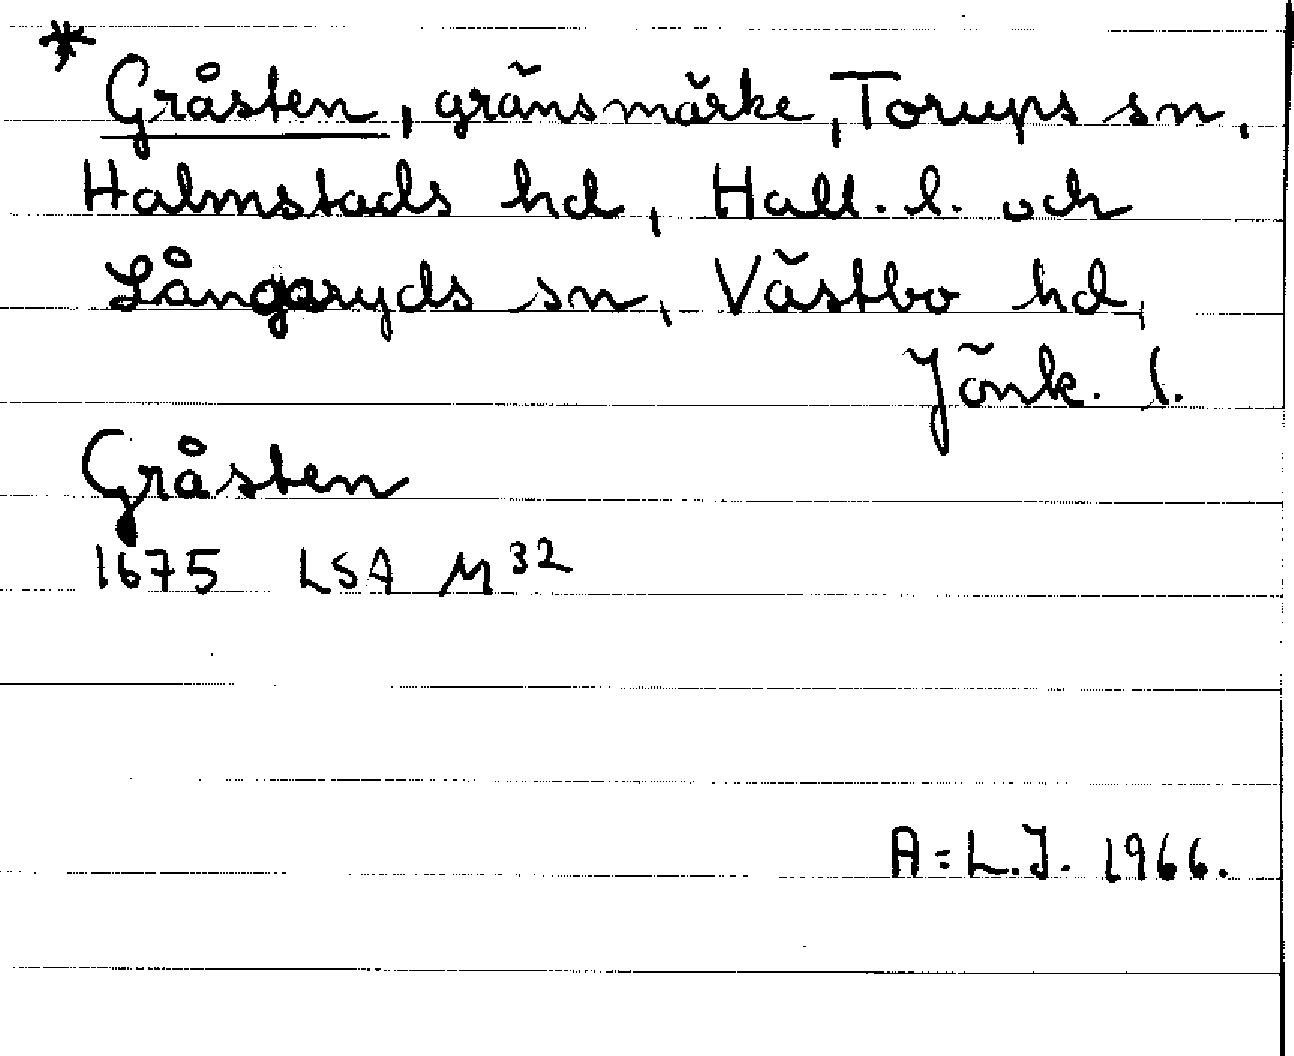 * Gråsten, gränsmärke, Torups sn,
Halmstads hd, Hall. l. och
Långaryds sn, Västbo hd,
Jönk. l.
Gråsten
1675 LSA M 32
A: L.J. 1966.